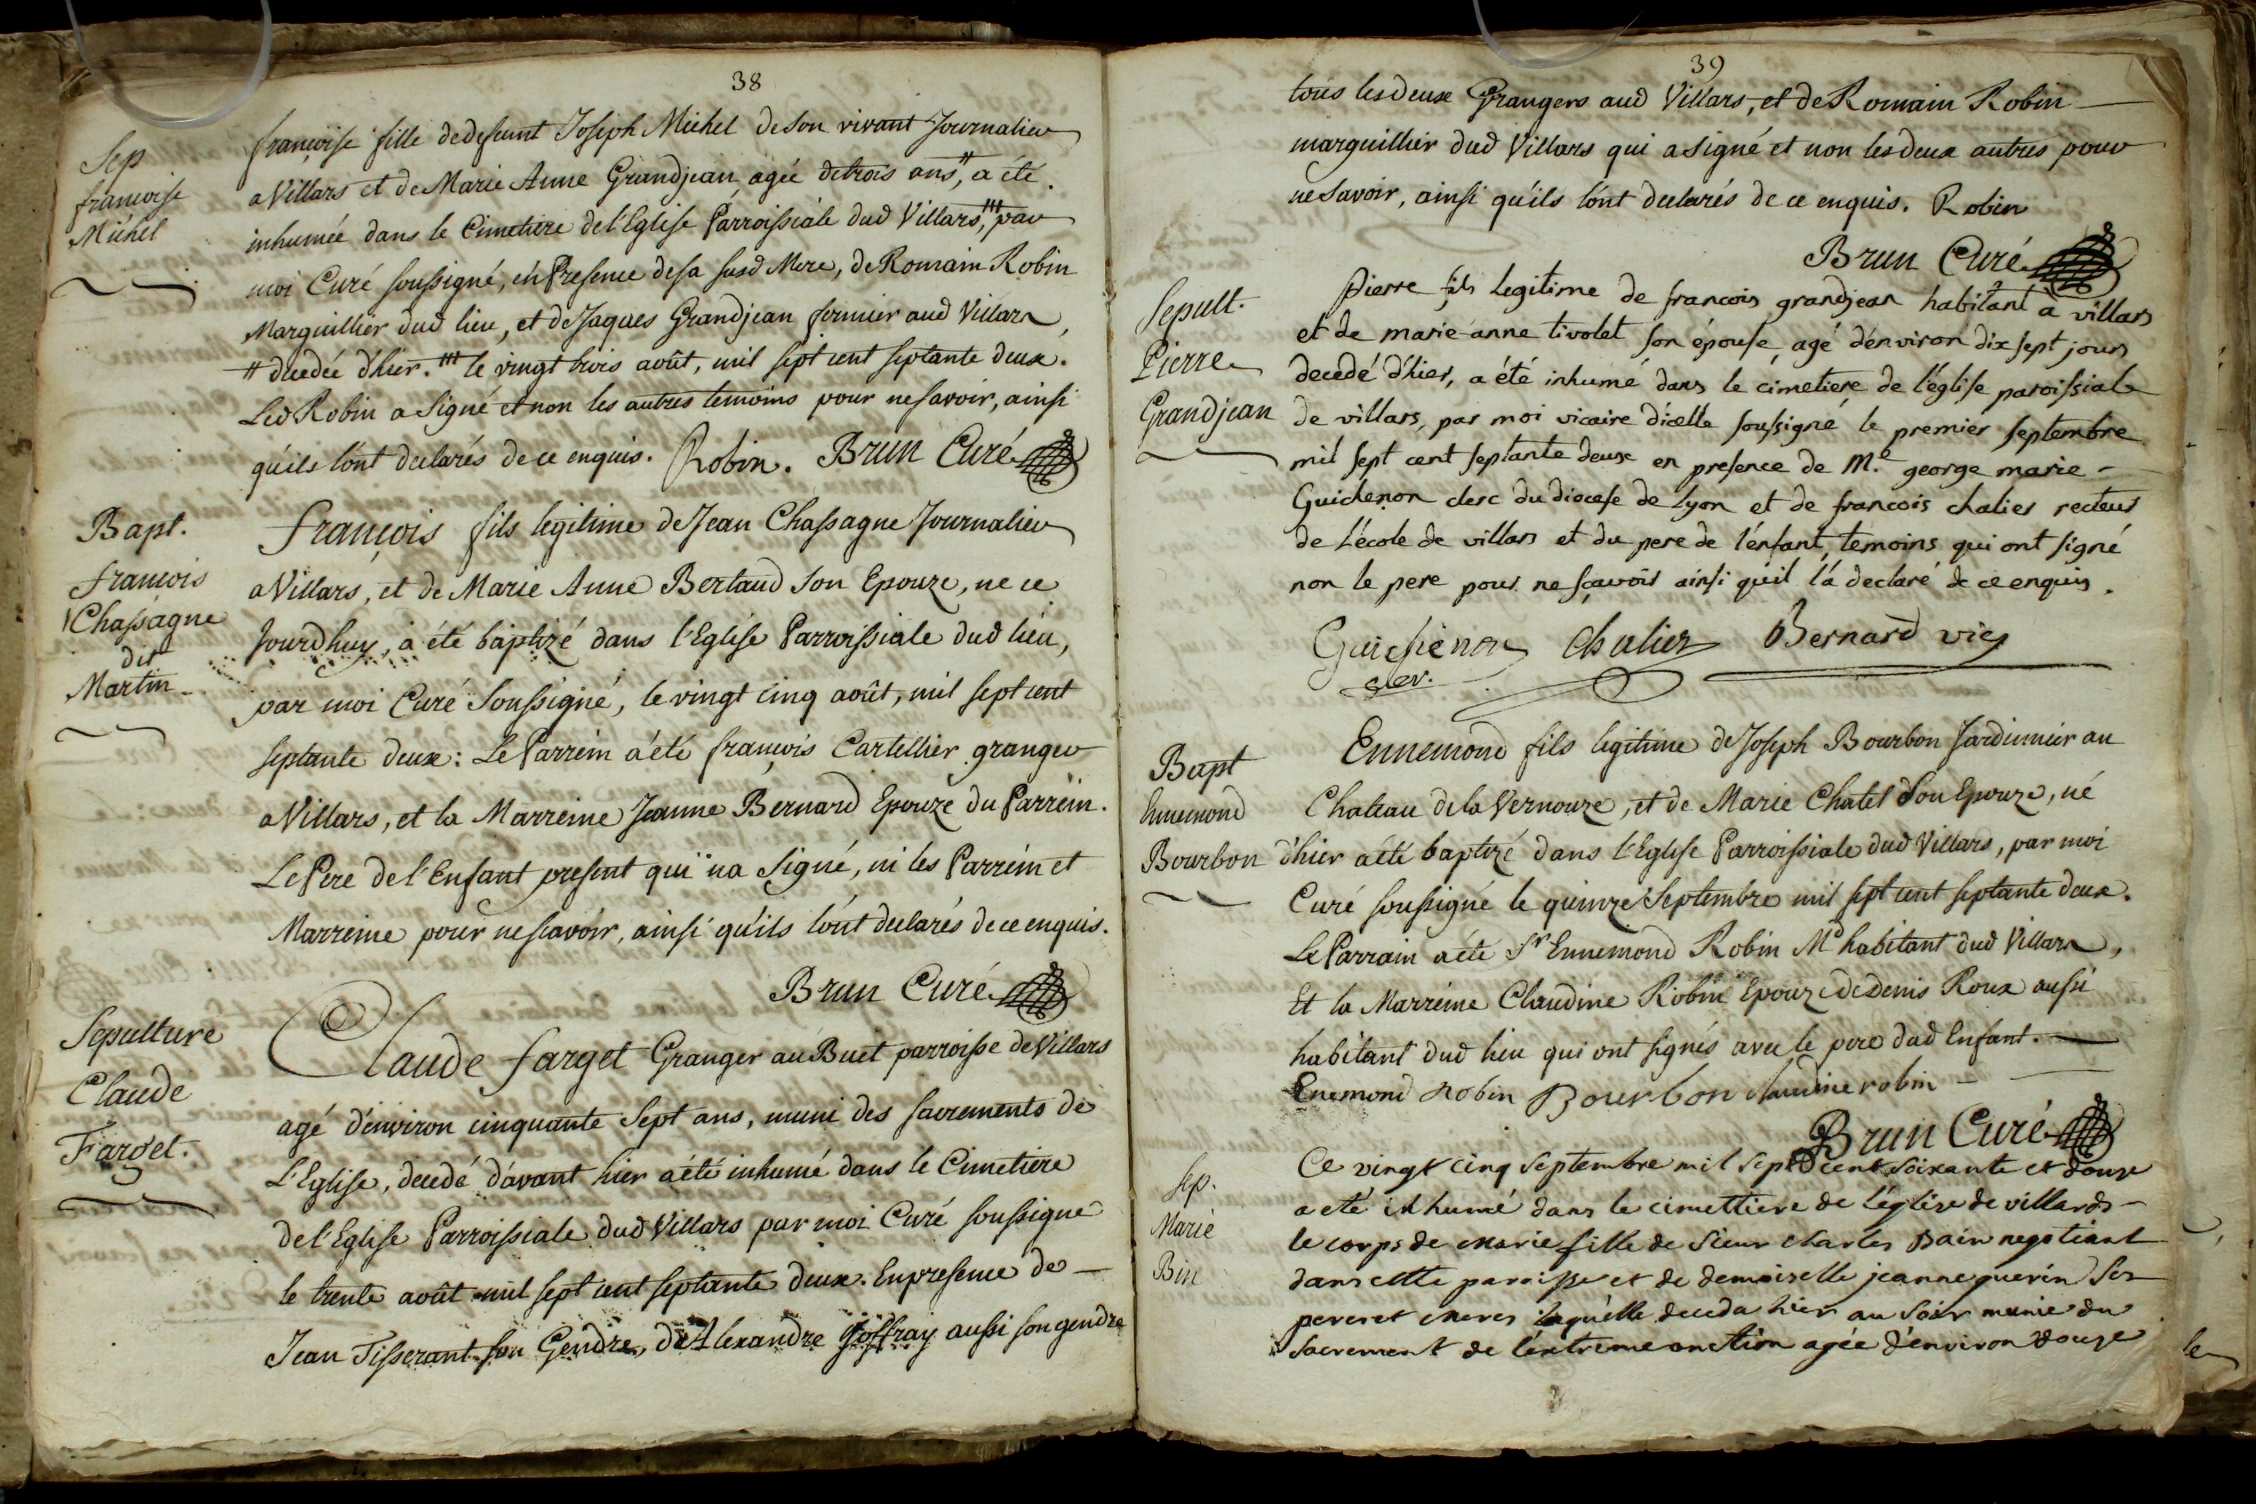 38
Sep
francoise
Michel
françoise fille de defeunt Joseph Michel de son vivant Journalier
a Villars et de Marie Anne Grandjean, agée de trois ans,# a été
inhumée dans le Cimetiere de l'Eglise Parroissiale dud Villars,### par
moi Curé soussigné, en Presence de sa susd Mere, de Romain Robin
Marguillier dud lieu, et de Jaques Grandjean fermier aud Villars,
# decedée d'hier. ### le vingt trois août, mil sept cent septante deux.
Led Robin a signé et non les autres temoins pour ne savoir, ainsi
qu'ils l'ont declarés de ce enquis. Robin. Brun Curé
Bapt.
francois
Chassagne
dit
Martin
françois fils legitime de Jean Chassagne Journalier
a Villars, et de Marie Anne Bertaud son Epouze, ne ce
Jourdhuy, a été baptizé dans l'Eglise Parroissiale dud lieu,
par moi Curé soussigné, le vingt cinq août, mil sept cent
septante deux: Le Parrein a été françois Cartellier granger
a Villars, et la Marreine Jeanne Bernard Epouze du Parrein.
Le Pere de l'Enfant present qui n'a signé, ni les Parrein et
Marreine pour ne scavoir, ainsi qu'ils l'ont declarés de ce enquis.
Brun Curé
Sepulture
Claude
Farget.
Claude farget Granger au Buet parroisse de Villars
agé d'environ cinquante sept ans, muni des sacrements de
L'Eglise, decedé d'avant hier a été inhumé dans le Cimetiere
de l'Eglise Parroissiale dud Villars par moi Curé soussigné
le trente août mil sept cent septante deux. En presence de
Jean Tisserant son Gendre, de Alexandre Joffray aussi son gendre
39
tous les deux Grangers aud Villars, et de Romain Robin
marguillier dud Villars qui a signé et non les deux autres pour
ne savoir, ainsi qu'ils l'ont declarés de ce enquis. Robin
Brun Curé
Sepult.
Pierre
Grandjean
Pierre fils legitime de francois grandjean habitant a villars
et de marie-anne tivolet son épouse, agé d'environ dix sept jours
decedé d'hier, a été inhumé dans le cimetiere de l'église paroissiale
de villars, par moi vicaire d'icelle soussigné le premier septembre
mil sept cent septante deux en presence de M.e george marie
Guichenon clerc du diocese de Lyon et de francois chalier recteur
de l'école de villars et du pere de l'enfant, temoins qui ont signé
non le pere pour ne scavoir ainsi qu'il l'a declaré de ce enquis.
Guichenon Chalier Bernard vic
cler.
Bapt
Ennemond
Bourbon
Ennemond fils legitime de Joseph Bourbon Jardinnier au
Chateau de la Vernouze, et de Marie Chatel son Epouze, né
d'hier a été baptizé dans l'Eglise Parroissiale dud Villars, par moi
Curé soussigné le quinze Septembre mil sept cent septante deux.
Le Parrain a été Sr Ennemond Robin Md habitant dud Villars,
Et la Marreine Claudine Robin Epouze de Denis Roux aussi
habitant dud lieu qui ont signés avec le pere dud Enfant.
Enemond Robin Bourbon claudine robin
Brun Curé
Sep.
Marie
Bin
Ce vingt cinq septembre mil sept cent soixante et douze
a eté inhumé dans le cimettiere de l'église de villards
le corps de marie fille de sieur charles Bain negotiant
dans cette paroisse et de demoiselle jeanne guerin ses
pere et meres laquelle deceda hier au soir munie du
sacrement de l'extreme onction agée d'environ douze
le